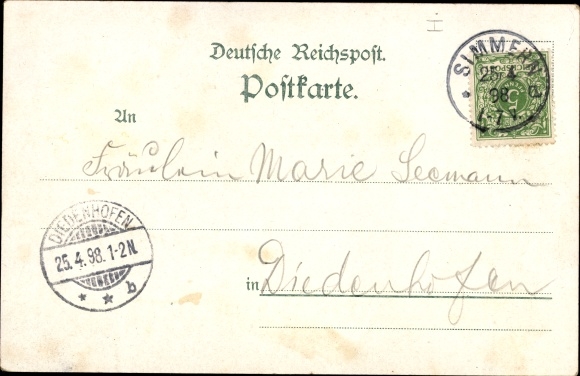 Deutsche Reichspost.
Postkarte.
SIMMERN
25/4
98
4-7 N.
* a
An
Fräulein Marie Seemann
DIEDENHOFEN
25.4.98.1-2N.
* * b
in Diedenhofen